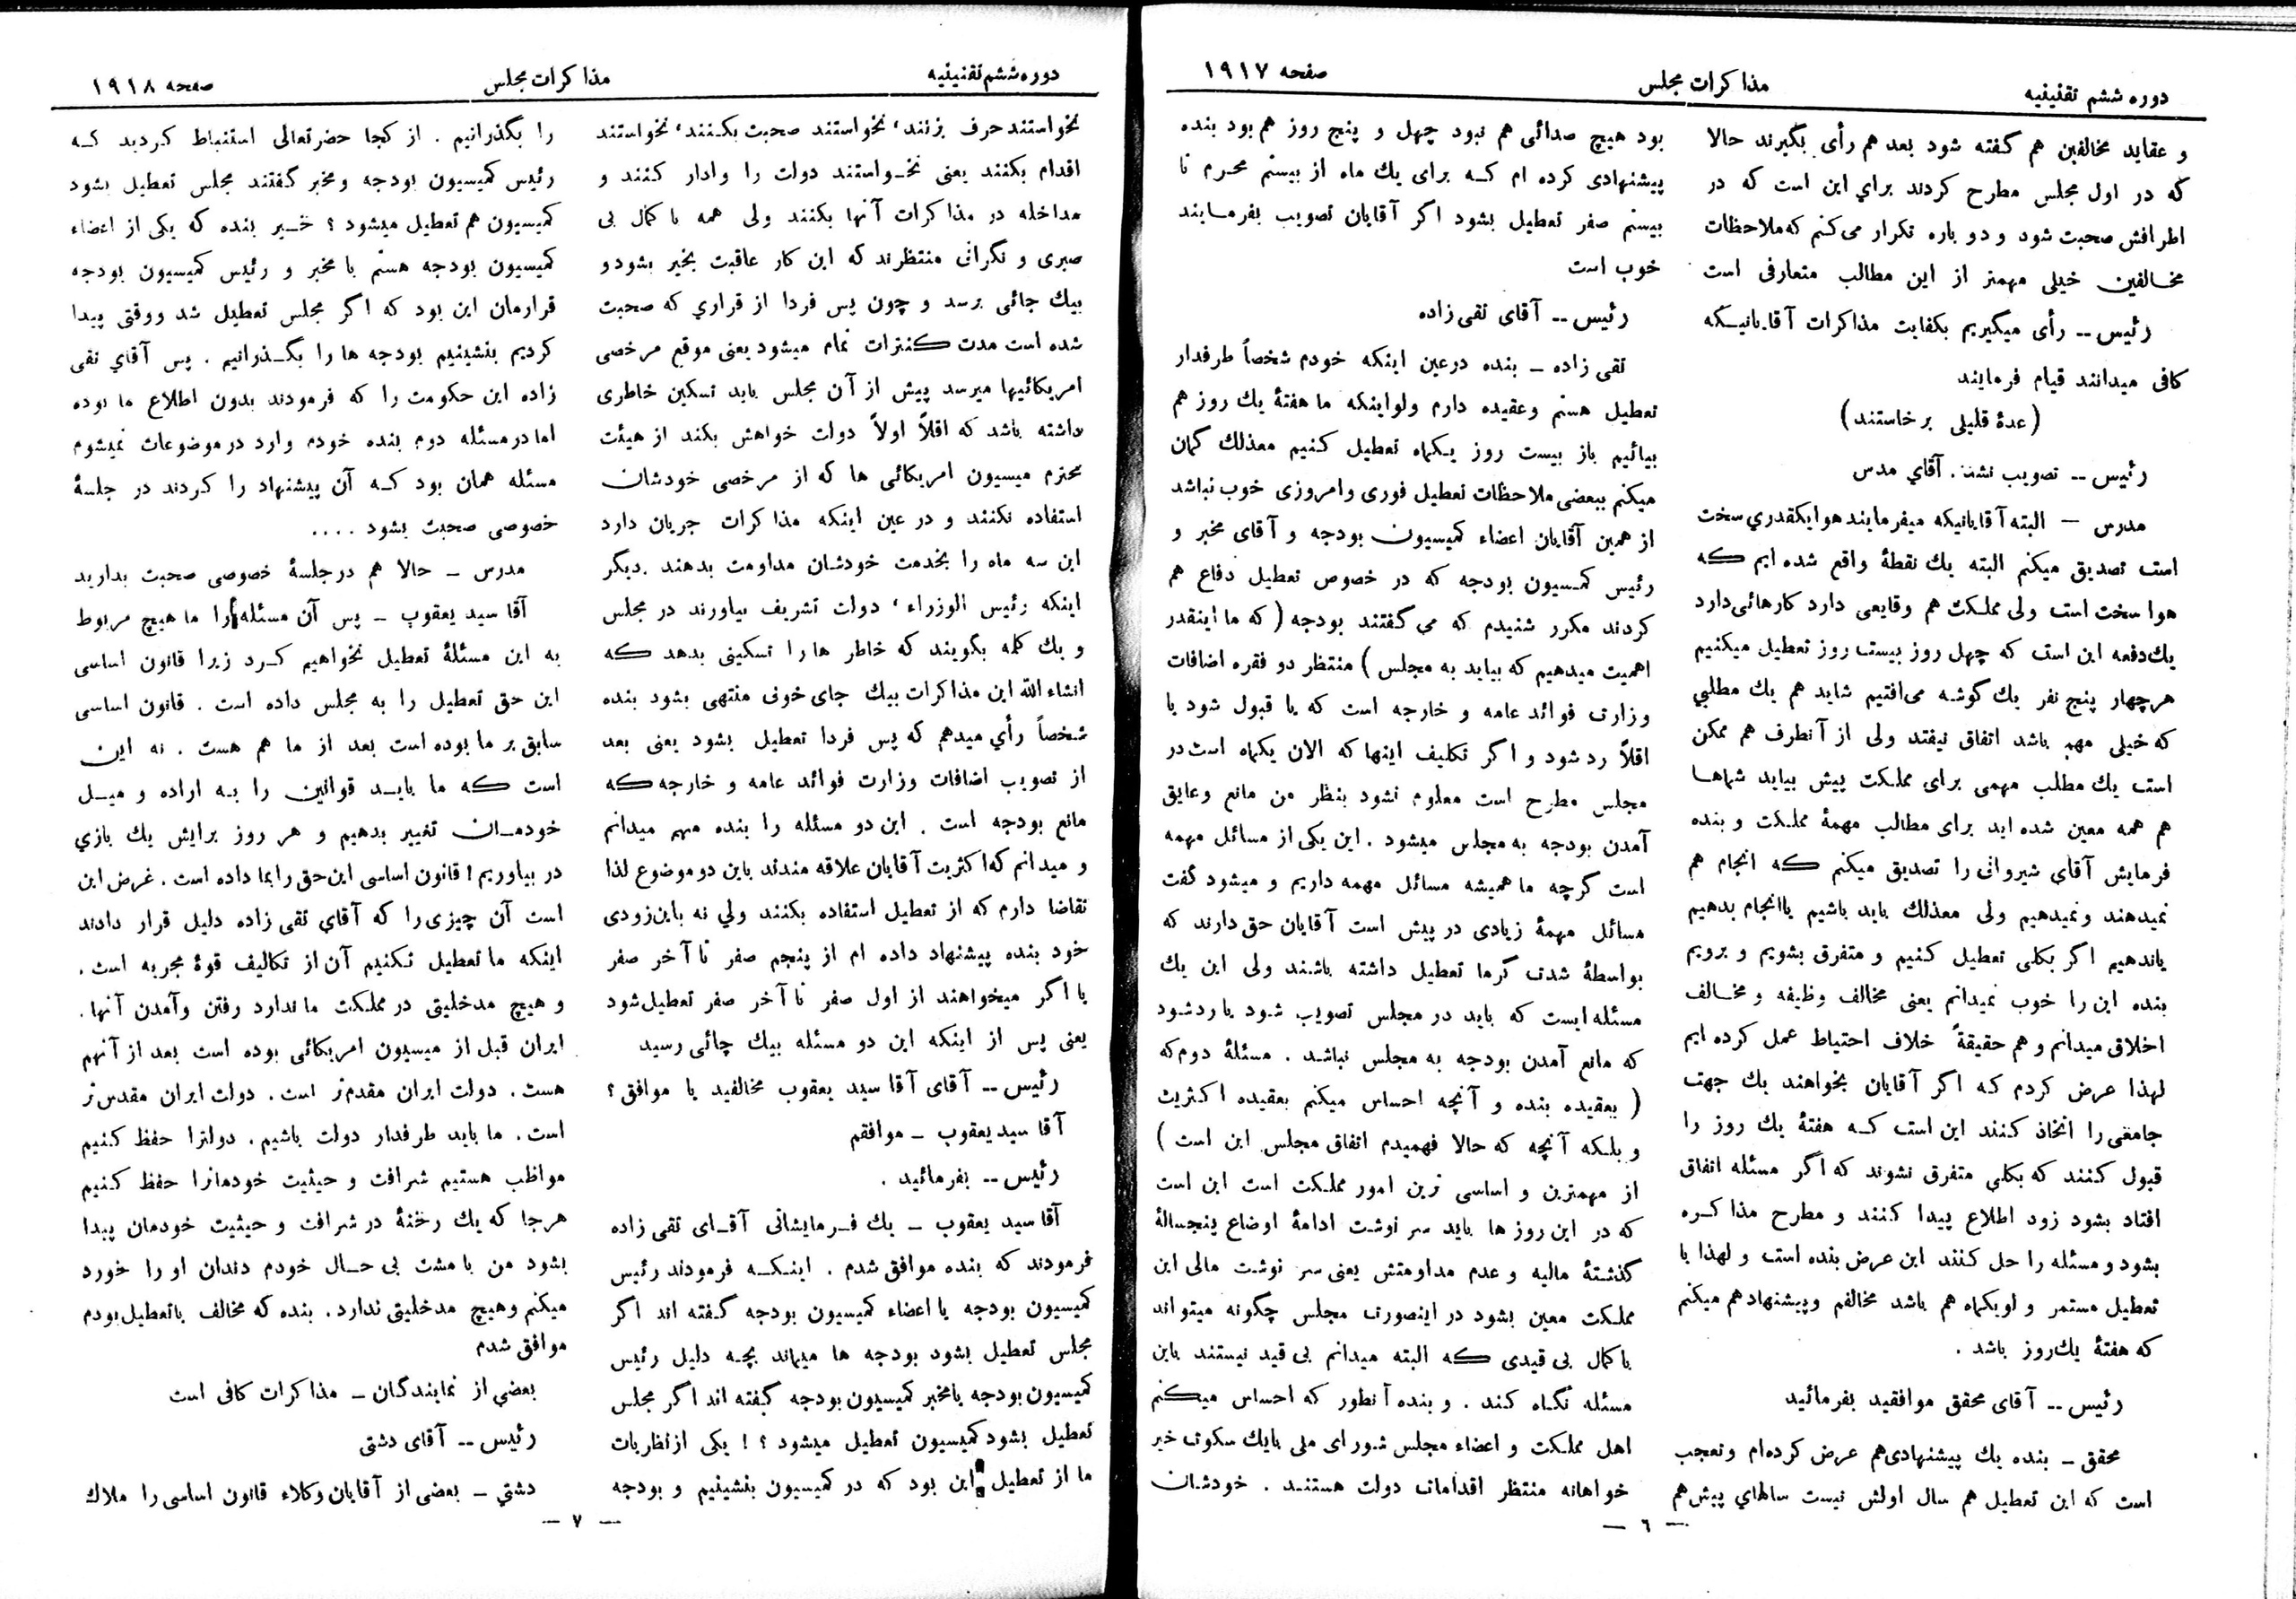 دوره ششم تقنینیه
مذاکرات مجلس
صفحه ۱۹۱۷
و عقاید مخالفین هم گفته شود بعد هم رأی بگیرند حالا
که در اول مجلس مطرح کردند براي این است که در
اطرافش صحبت شود و دو باره تکرار می‌کنم که ملاحظات
مخالفین خیلی مهمتر از این مطالب متعارفی است
رئیس -- رأی میگیریم بکفایت مذاکرات آقایانیکه
کافی میدانند قیام فرمایند
(عدهٔ قلیلی برخاستند)
رئیس -- تصویب نشد. آقاي مدرس
مدرس — البته آقایانیکه میفرمایند هوا یکقدري سخت
است تصدیق میکنم البته یك نقطهٔ واقع شده ایم که
هوا سخت است ولی مملکت هم وقایعی دارد کارهائی دارد
یك‌دفعه این است که چهل روز بیست روز تعطیل میکنیم
هر چهار پنج نفر یك گوشه می‌افتیم شاید هم یك مطلبي
که خیلی مهم باشد اتفاق نیفتد ولی از آنطرف هم ممکن
است یك مطلب مهمی برای مملکت پیش بیاید شماها
هم همه معین شده اید برای مطالب مهمهٔ مملکت و بنده
فرمایش آقای شیروانی را تصدیق میکنم که انجام هم
نمیدهند و نمیدهیم ولی معذلك باید باشیم یا انجام بدهیم
یا ندهیم اگر بکلی تعطیل کنیم و متفرق بشویم و برویم
بنده این را خوب نمیدانم یعنی مخالف وظیفه و مخالف
اخلاق میدانم و هم حقیقةً خلاف احتیاط عمل کرده ایم
لهذا عرض کردم که اگر آقایان بخواهند یك جهت
جامعی را اتخاذ کنند این است که هفتهٔ یك روز را
قبول کنند که بکلي متفرق نشوند که اگر مسئله اتفاق
افتاد بشود زود اطلاع پیدا کنند و مطرح مذاکره
بشود و مسئله را حل کنند این عرض بنده است و لهذا با
تعطیل مستمر و لو یکماه هم باشد مخالفم و پیشنهاد هم میکنم
که هفتهٔ یك روز باشد .
رئیس -- آقای محقق موافقید بفرمائید
محقق ــ بنده یك پیشنهادی هم عرض کرده‌ام و تعجب
است که این تعطیل هم سال اولش نیست سالهاي پیش هم
بود هیچ صدائی هم نبود چهل و پنج روز هم بود بنده
پیشنهادی کرده ام که برای یك ماه از بیستم محرم تا
بیستم صفر تعطیل بشود اگر آقایان تصویب بفرمایند
خوب است
رئیس -- آقای تقی زاده
تقی زاده ــ بنده در عین اینکه خودم شخصاً طرفدار
تعطیل هستم و عقیده دارم ولو اینکه ما هفتهٔ یك روز هم
بیائیم باز بیست روز یکماه تعطیل کنیم معذلك گمان
میکنم ببعضی ملاحظات تعطیل فوری و امروزی خوب نباشد
از همین آقایان اعضاء کمیسیون بودجه و آقای مخبر و
رئیس کمسیون بودجه که در خصوص تعطیل دفاع هم
کردند مکرر شنیدم که می گفتند بودجه (که ما اینقدر
اهمیت میدهیم که بیاید به مجلس) منتظر دو فقره اضافات
وزارت فوائد عامه و خارجه است که یا قبول شود یا
اقلاً رد شود و اگر تکلیف اینها که الان یکماه است در
مجلس مطرح است معلوم نشود بنظر من مانع و عایق
آمدن بودجه به مجلس میشود . این یکی از مسائل مهمه
است گرچه ما همیشه مسائل مهمه داریم و میشود گفت
مسائل مهمهٔ زیادی در پیش است آقایان حق دارند که
بواسطهٔ شدت گرما تعطیل داشته باشند ولی این یك
مسئله ایست که باید در مجلس تصویب شود یا رد شود
که مانع آمدن بودجه به مجلس نباشد . مسئلهٔ دوم که
( بعقیده بنده و آنچه احساس میکنم بعقیده اکثریت
و بلکه آنچه که حالا فهمیدم اتفاق مجلس این است )
از مهمترین و اساسی ترین امور مملکت است این است
که در این روز ها باید سر نوشت ادامهٔ اوضاع پنجسالهٔ
گذشتهٔ مالیه و عدم مداومتش یعنی سر نوشت مالی این
مملکت معین بشود در اینصورت مجلس چگونه میتواند
با کمال بی قیدی که البته میدانم بی قید نیستند باین
مسئله نگاه کند . و بنده آنطور که احساس میکنم
اهل مملکت و اعضاء مجلس شورای ملی با یك سکوت خیر
خواهانه منتظر اقدامات دولت هستند . خودشان
— ٦ —
دوره ششم تقنینیه
مذاکرات مجلس
صفحه ۱۹۱۸
نخواستند حرف بزنند، نخواستند صحبت بکنند، نخواستند
اقدام بکنند یعنی نخواستند دولت را وادار کنند و
مداخله در مذاکرات آنها بکنند ولی همه با کمال بی
صبری و نگرانی منتظرند که این کار عاقبت بخیر بشود و
بیك جائی برسد و چون پس فردا از قراري که صحبت
شده است مدت کنترات تمام میشود یعنی موقع مرخصی
امریکائیها میرسد پیش از آن مجلس باید تسکین خاطری
داشته باشد که اقلاً اولاً دولت خواهش بکند از هیئت
محترم میسیون امریکائی ها که از مرخصی خودشان
استفاده نکنند و در عین اینکه مذاکرات جریان دارد
این سه ماه را بخدمت خودشان مداومت بدهند . دیگر
اینکه رئیس الوزراء، دولت تشریف بیاورند در مجلس
و یك کلمه بگویند که خاطر ها را تسکینی بدهد که
انشاء الله این مذاکرات بیك جای خوبی منتهی بشود بنده
شخصاً رأي میدهم که پس فردا تعطیل بشود یعنی بعد
از تصویب اضافات وزارت فوائد عامه و خارجه که
مانع بودجه است . این دو مسئله را بنده مهم میدانم
و میدانم که اکثریت آقایان علاقه مندند باین دو موضوع لذا
تقاضا دارم که از تعطیل استفاده بکنند ولي نه باین زودی
خود بنده پیشنهاد داده ام از پنجم صفر تا آخر صفر
یا اگر میخواهند از اول صفر تا آخر صفر تعطیل شود
یعنی پس از اینکه این دو مسئله بیك جائی رسید
رئیس -- آقای آقا سید یعقوب مخالفید یا موافق؟
آقا سید یعقوب ــ موافقم
رئیس -- بفرمائید .
آقا سید یعقوب ــ یك فرمایشاتی آقای تقی زاده
فرمودند که بنده موافق شدم . اینکه فرمودند رئیس
کمیسیون بودجه یا اعضاء کمیسیون بودجه گفته اند اگر
مجلس تعطیل بشود بودجه ها میماند بچه دلیل رئیس
کمیسیون بودجه یا مخبر کمیسیون بودجه گفته اند اگر مجلس
تعطیل بشود کمیسیون تعطیل میشود ؟! یکی از نظریات
ما از تعطیل این بود که در کمیسیون بنشینیم و بودجه
را بگذرانیم . از کجا حضرتعالی استنباط کردید که
رئیس کمیسیون بودجه و مخبر گفتند مجلس تعطیل بشود
کمیسیون هم تعطیل میشود ؟ خیر بنده که یکی از اعضاء
کمیسیون بودجه هستم با مخبر و رئیس کمیسیون بودجه
قرارمان این بود که اگر مجلس تعطیل شد و وقتی پیدا
کردیم بنشینیم بودجه ها را بگذرانیم . پس آقاي تقی
زاده این حکومت را که فرمودند بدون اطلاع ما بوده
اما در مسئله دوم بنده خودم وارد در موضوعات نمیشوم
مسئله همان بود که آن پیشنهاد را کردند در جلسهٔ
خصوصی صحبت بشود ....
مدرس ــ حالا هم در جلسهٔ خصوصی صحبت بدارید
آقا سید یعقوب ــ پس آن مسئله را ما هیچ مربوط
به این مسئلهٔ تعطیل نخواهیم کرد زیرا قانون اساسی
این حق تعطیل را به مجلس داده است . قانون اساسی
سابق بر ما بوده است بعد از ما هم هست . نه این
است که ما باید قوانین را به اراده و میل
خودمان تغییر بدهیم و هر روز برایش یك بازي
در بیاوریم ! قانون اساسی این حق را بما داده است . غرض این
است آن چیزی را که آقای تقی زاده دلیل قرار دادند
اینکه ما تعطیل نکنیم آن از تکالیف قوهٔ مجریه است .
و هیچ مدخلیتی در مملکت ما ندارد رفتن و آمدن آنها .
ایران قبل از میسیون امریکائی بوده است بعد از آنهم
هست . دولت ایران مقدم‌تر است . دولت ایران مقدس‌تر
است . ما باید طرفدار دولت باشیم . دولترا حفظ کنیم
مواظب هستیم شرافت و حیثیت خودمانرا حفظ کنیم
هر جا که یك رخنهٔ در شرافت و حیثیت خودمان پیدا
بشود من با مشت بی حال خودم دندان او را خورد
میکنم و هیچ مدخلیتی ندارد . بنده که مخالف با تعطیل بودم
موافق شدم
بعضي از نمایندگان ــ مذاکرات کافی است
رئیس -- آقای دشتی
دشتي ــ بعضی از آقایان وکلاء قانون اساسی را ملاك
— ۷ —